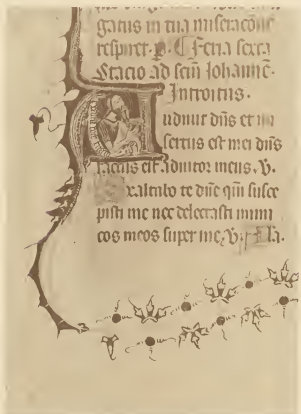 gatus in tua miseracōne
respiret. p. C Feria sexta
Stacio ad scm̄ Iohannē.
Introitus.
udiuit dn̄s et mi
sertus est mei dn̄s
factus est adiutor meus. V.
Exaltabo te dn̄e qm̄ susce
pisti me nec delectasti inimi
cos meos super me. V.